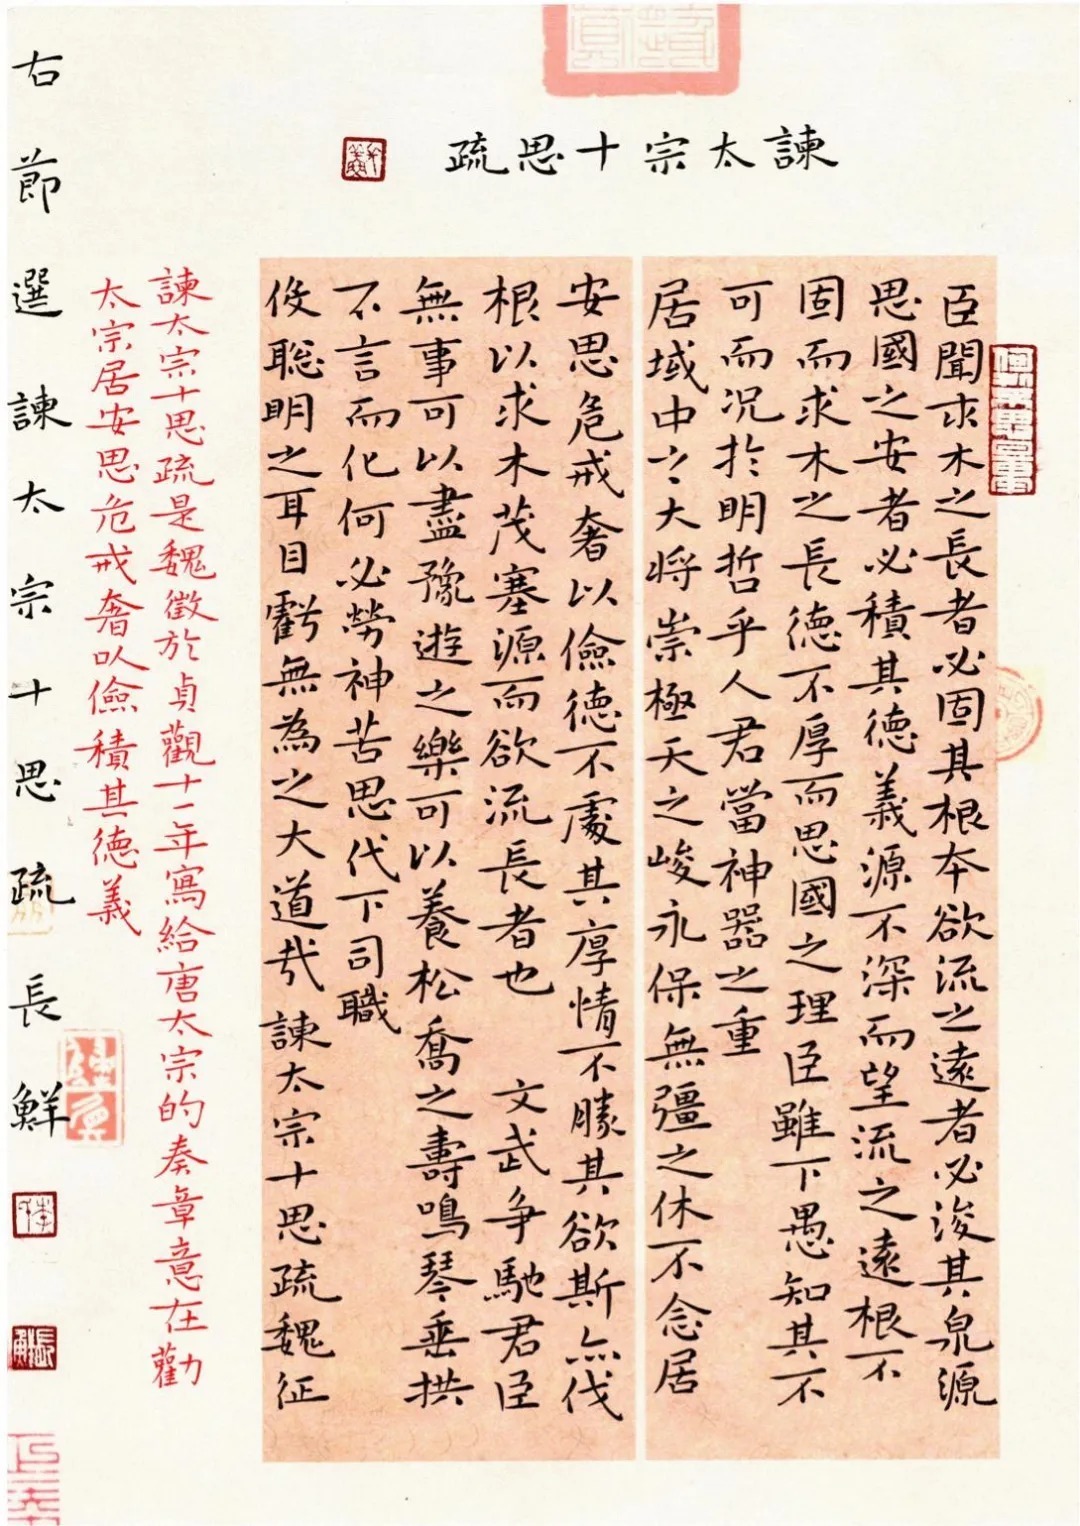 諫太宗十思疏
臣聞求木之長者必固其根本欲流之遠者必浚其泉源
思國之安者必積其德義源不深而望流之遠根不
固而求木之長德不厚而思國之理臣雖下愚知其不
可而况於明哲乎人君當神器之重
居域中之大将崇極天之峻永保無彊之休不念居
安思危戒奢以儉德不處其厚情不勝其欲斯亦伐
根以求木茂塞源而欲流長者也 文武争馳君臣
無事可以盡豫遊之樂可以養松喬之壽鳴琴垂拱
不言而化何必勞神苦思代下司職
役聡明之耳目虧無為之大道哉 諫太宗十思疏魏征
諫太宗十思疏是魏徵於貞觀十一年寫給唐太宗的奏章意在勸
太宗居安思危戒奢以儉積其德義
右節選諫太宗十思疏長鮮